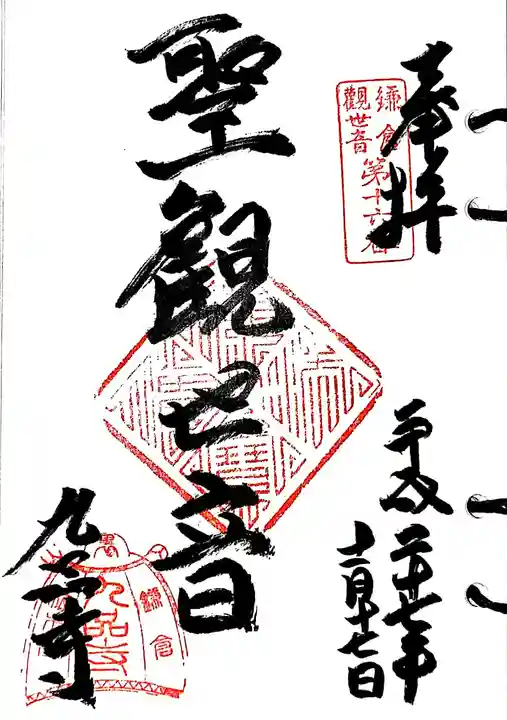 奉拝
鎌倉
観世音
第十六番
聖観世音
平成二十七年
十一月十七日
九品寺
鎌倉
九品寺